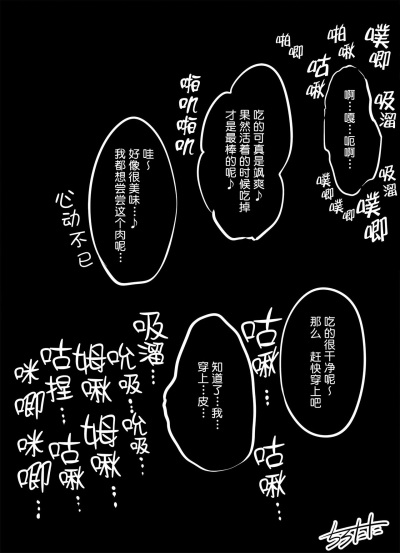 噗唧
啪唧
啪啾
咕啾
吸溜
啊…嘎…呃啊…
噗唧
噗唧
噗唧
噗唧
吃的可真是飒爽♪
果然活着的时候吃掉
才是最棒的呢♪
啪叽啪叽
哇~
好像很美味…♪
我都想尝尝这个肉呢…
心动不已
吃的很干净呢~
那么 赶快穿上吧
咕啾…
咕啾…
知道了…我…
穿上…皮…
吸溜…
吮吸…
吮吸…
姆啾…
姆啾…
咕捏…
咕啾…
咪唧…
咪唧…